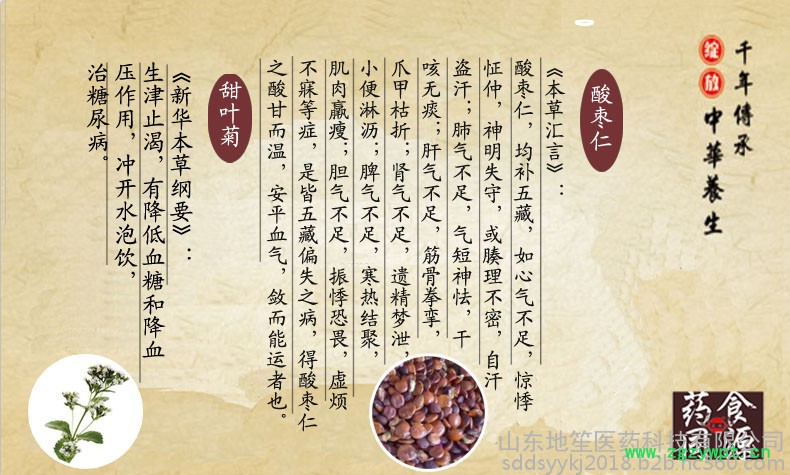 千年傳承
綻放中華養生
酸枣仁
《本草汇言》：
酸枣仁，均补五藏，如心气不足，惊悸
怔仲，神明失守，或腠理不密，自汗
盗汗；肺气不足，气短神怯，干
咳无痰；肝气不足，筋骨拳挛，
爪甲枯折；肾气不足，遗精梦泄，
小便淋沥；脾气不足，寒热结聚，
肌肉羸瘦；胆气不足，振悸恐畏，虚烦
不寐等症，是皆五藏偏失之病，得酸枣仁
之酸甘而温，安平血气，敛而能运者也。
甜叶菊
《新华本草纲要》：
生津止渴，有降低血糖和降血
压作用，冲开水泡饮，
治糖尿病。
食源
药同
山东地笙医药科技有限公司
www.zgzywpt.cn